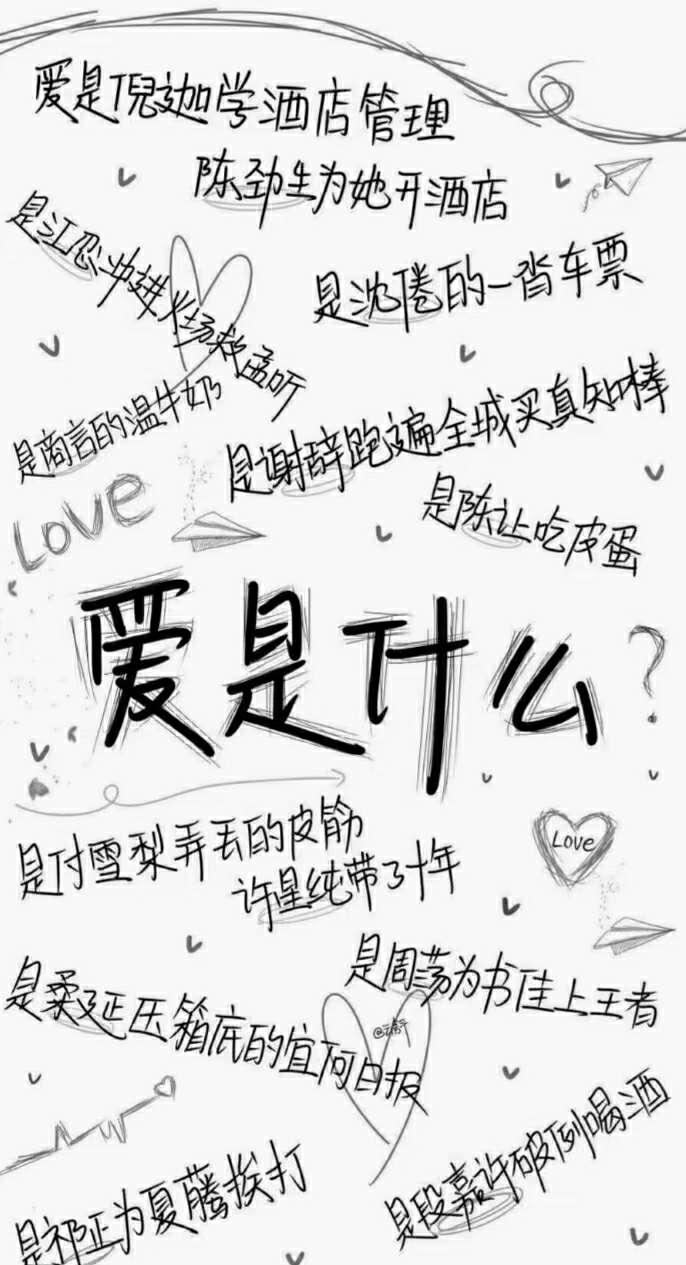 爱是倪迦学酒店管理
陈劲生为她开酒店
是江忍冲进火场救孟听
是沈倦的一沓车票
是商言的温牛奶
是谢辞跑遍全城买真知棒
是陈让吃皮蛋
Love
爱是什么?
是付雪梨弄丢的皮筋
许星纯带了十年
Love
是周荡为书佳上王者
是柔延压箱底的宜河日报
是段嘉许破例喝酒
是祁正为夏藤挨打